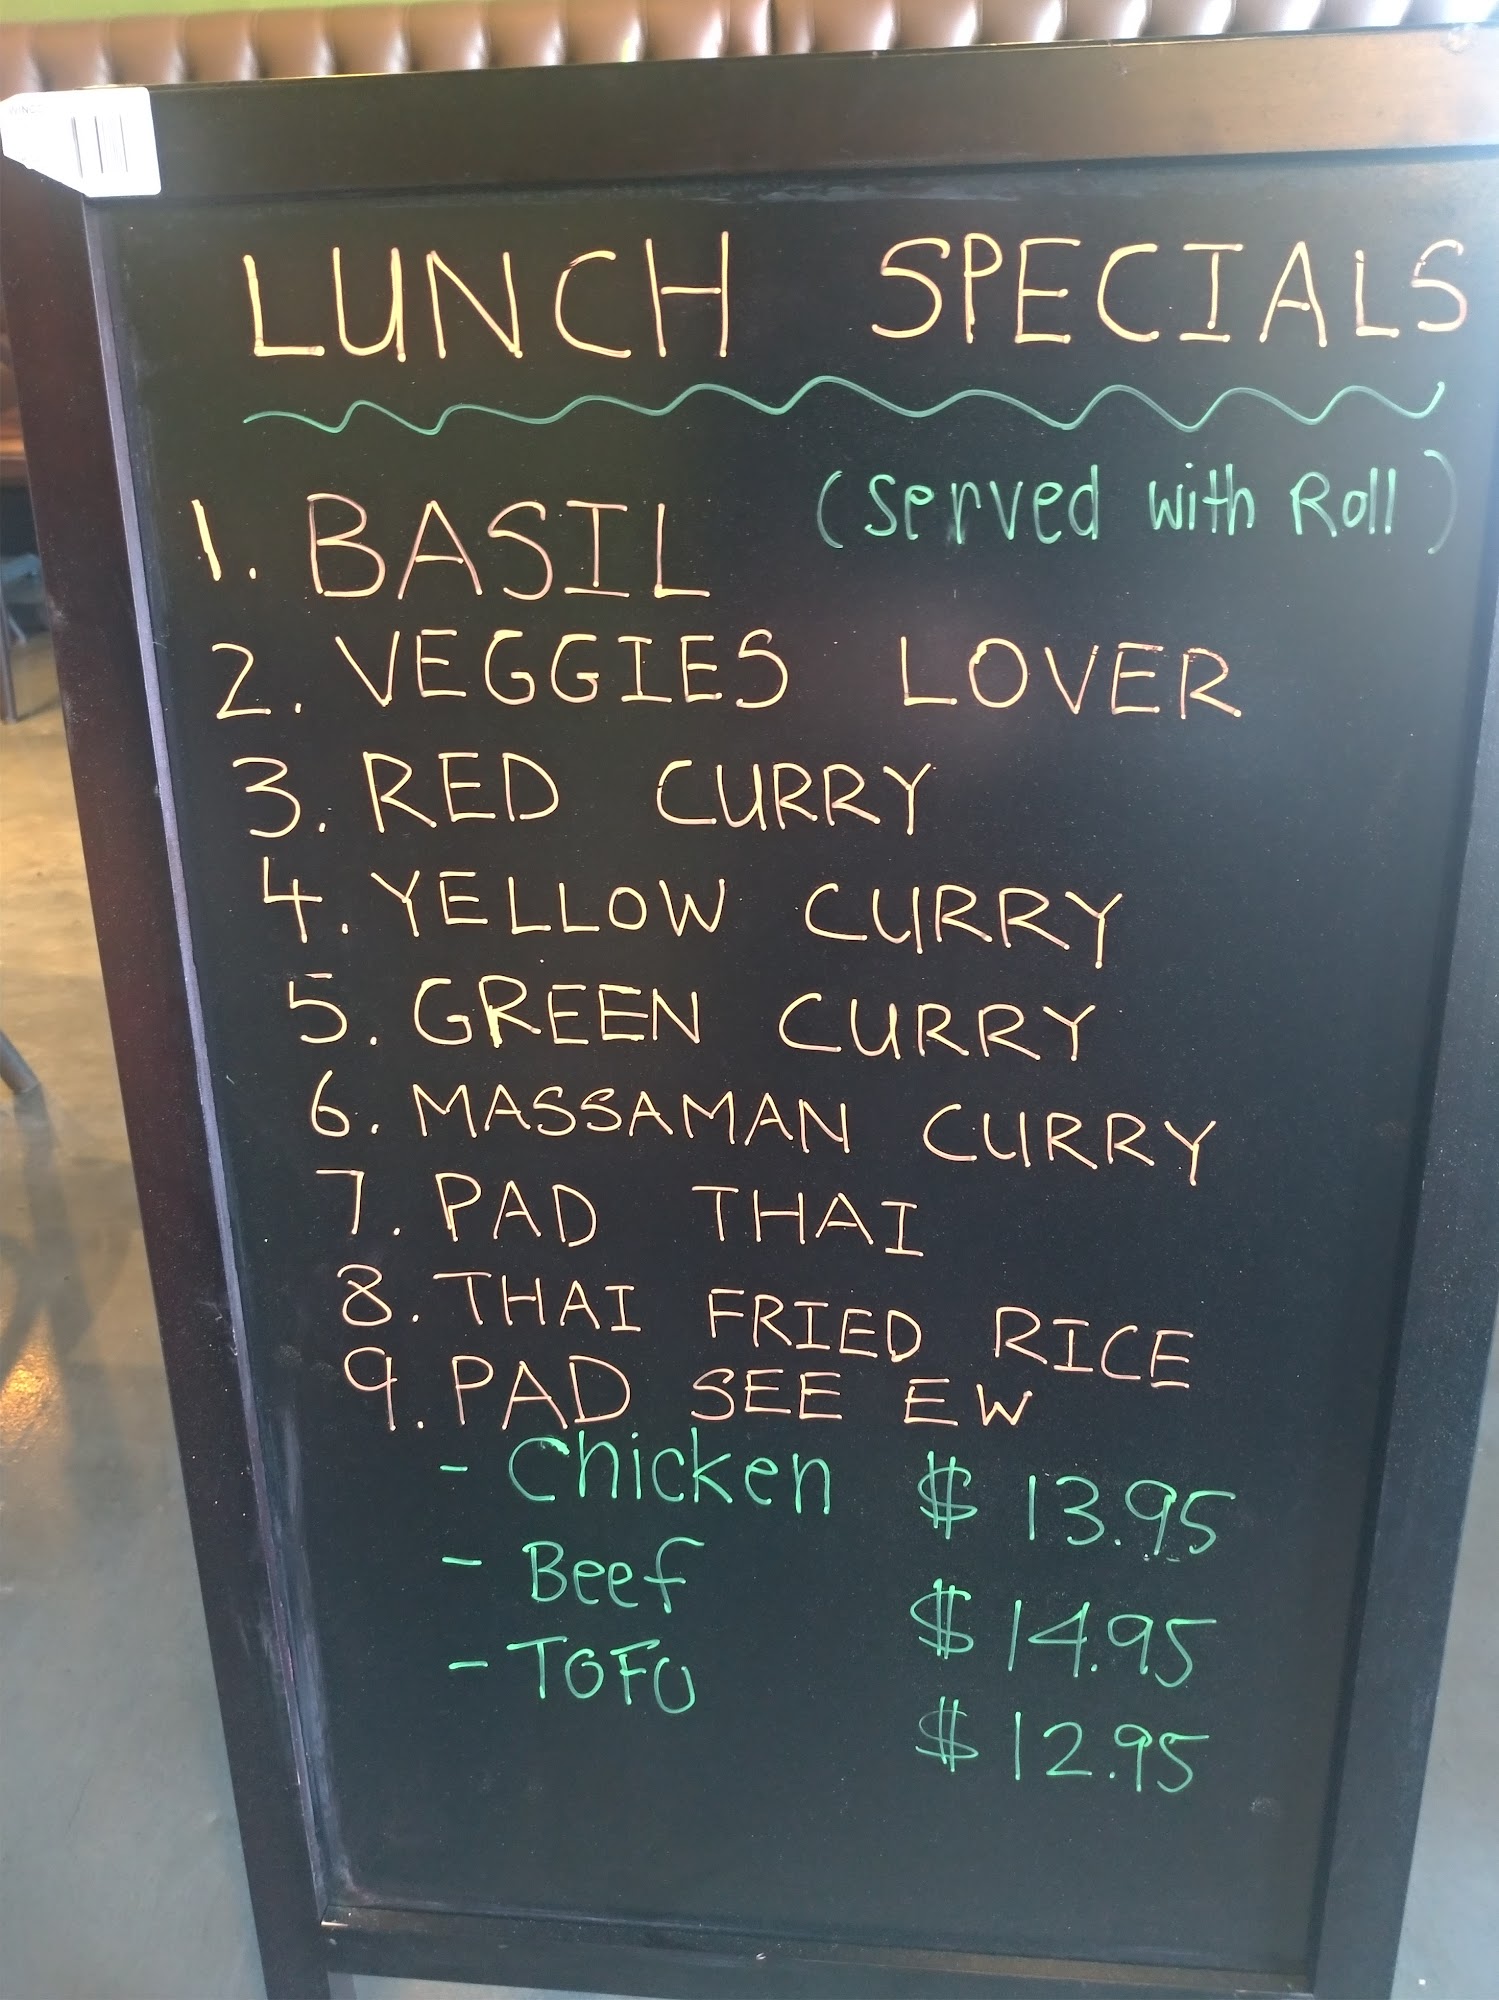 LUNCH SPECIALS
(Served with Roll)
1. BASIL
2. VEGGIES LOVER
3. RED CURRY
4. YELLOW CURRY
5. GREEN CURRY
6. MASSAMAN CURRY
7. PAD THAI
8. THAI FRIED RICE
9. PAD SEE EW
- Chicken $ 13.95
- Beef $ 14.95
- TOFU $ 12.95